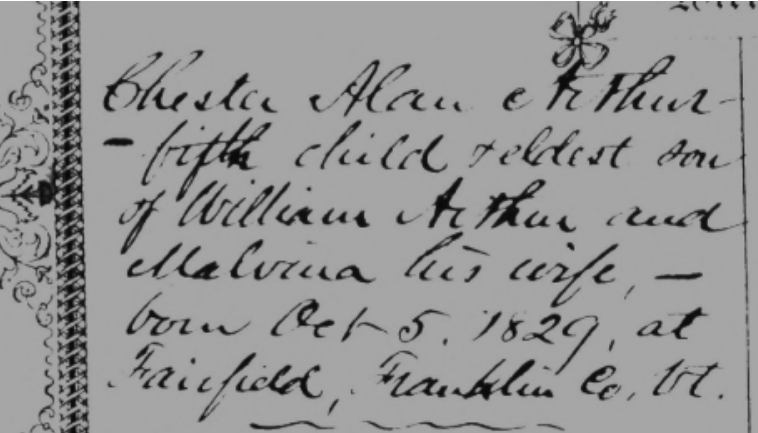 Chester Alan Arthur -
- fifth child & eldest son
of William Arthur and
Malvina his wife, -
born Oct 5. 1829, at
Fairfield, Franklin Co. Vt.